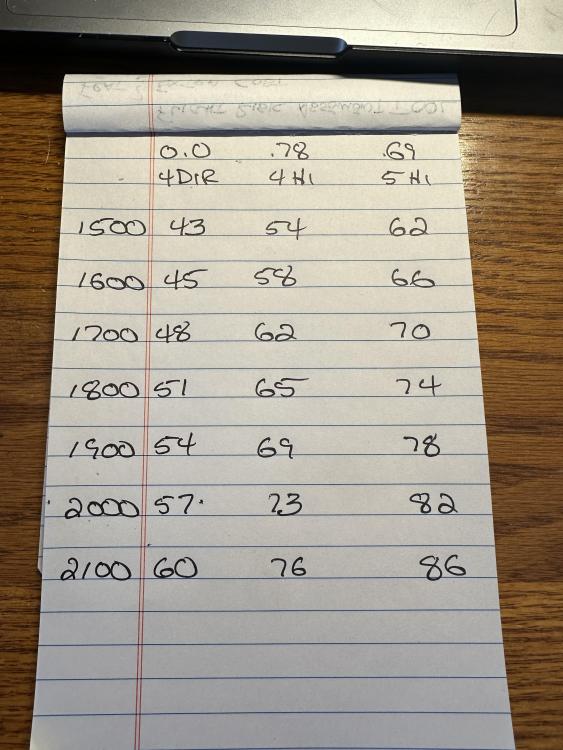 0.0 .78 .69
4DIR 4 HI 5 HI
1500 43 54 62
1600 45 58 66
1700 48 62 70
1800 51 65 74
1900 54 69 78
2000 57 73 82
2100 60 76 86